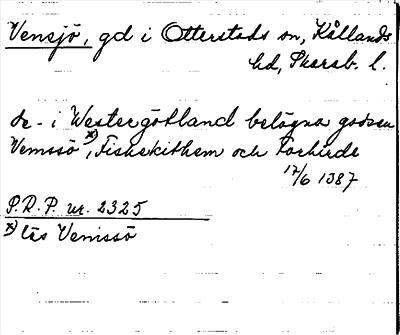 Vensjö, gd i Otterstads sn, Kållands
hd, Skarab. l.
de - i Westergötland belägna godsen
Vemssö x), Fiskekithem och Torhirde
17/6 1387
P.R.P. nr. 2325
x) läs Venissö